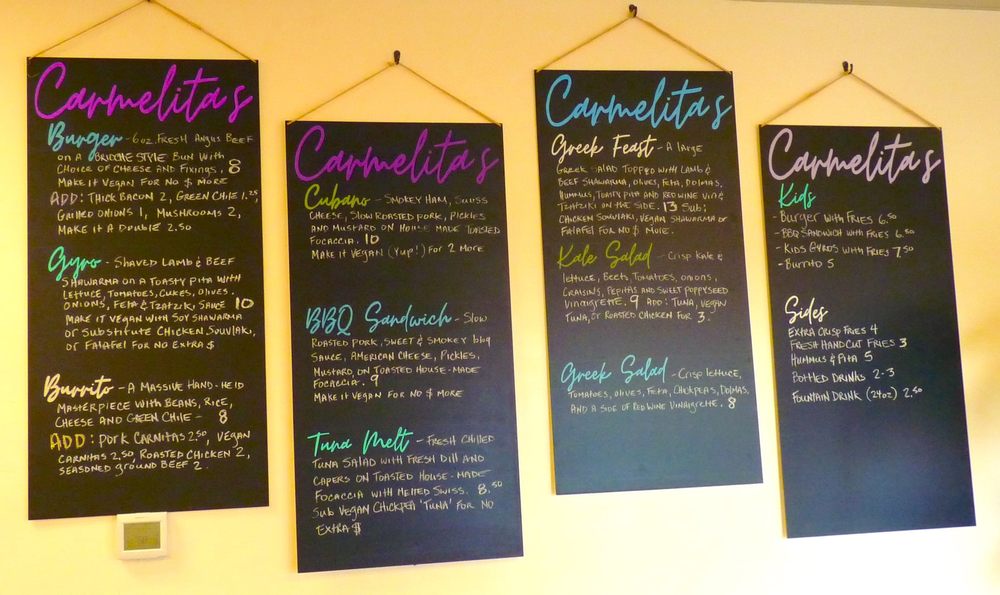 Carmelitas
Burger - 6oz. Fresh Angus Beef
on a Brioche style Bun with
choice of cheese and fixings. 8
Make it vegan for no $ more
ADD: Thick Bacon 2, Green Chile 1.25
Grilled Onions 1, Mushrooms 2,
Make it a Double 2.50
Gyro - Shaved Lamb & Beef
Shawarma on a toasty pita with
lettuce, tomatoes, cukes, olives,
onions, feta & tzatziki sauce 10
Make it vegan with soy shawarma
or substitute chicken souvlaki,
or falafel for no extra $
Burrito - A massive hand-held
masterpiece with beans, rice,
cheese and green chile - 8
ADD: Pork Carnitas 2.50, Vegan
Carnitas 2.50, Roasted Chicken 2,
seasoned ground beef 2.
Carmelitas
Cubano - Smokey ham, swiss
cheese, slow roasted pork, pickles
and mustard on house made toasted
focaccia. 10
Make it vegan (Yup!) for 2 more
BBQ Sandwich - Slow
roasted pork, sweet & smokey bbq
sauce, American cheese, pickles,
mustard, on toasted house-made
focaccia. 9
Make it vegan for no $ more
Tuna Melt - Fresh chilled
tuna salad with fresh dill and
capers on toasted house-made
focaccia with melted swiss. 8.50
Sub vegan chickpea 'tuna' for no
extra $
Carmelitas
Greek Feast - A large
Greek salad topped with lamb &
beef shawarma, olives, feta, dolmas,
hummus, toasty pita and red wine vin &
tzatziki on the side. 13 Sub:
chicken souvlaki, vegan shawarma or
falafel for no $ more.
Kale Salad - Crisp kale &
lettuce, beets, tomatoes, onions,
craisins, pepitas and sweet poppyseed
vinaigrette. 9 Add: tuna, vegan
tuna, or roasted chicken for 3.
Greek Salad - Crisp lettuce,
tomatoes, olives, feta, chickpeas, dolmas,
and a side of red wine vinaigrette. 8
Carmelitas
Kids
- Burger with fries 6.50
- BBQ Sandwich with fries 6.50
- Kids Gyros with fries 7.50
- Burrito 5
Sides
Extra Crisp Fries 4
Fresh Hand Cut Fries 3
Hummus & Pita 5
Bottled Drinks 2-3
Fountain Drink (24oz) 2.50